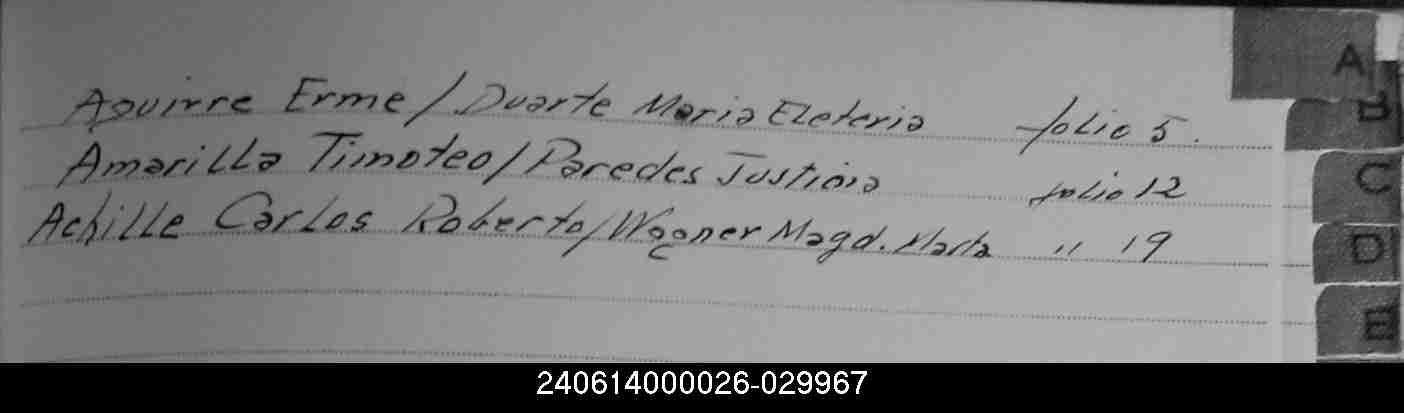 A
Aguirre Erme / Duarte Maria Eleteria folio 5.
B
Amarilla Timoteo / Paredes Justina folio 12
C
Achille Carlos Roberto / Wagner Magd. Marta " 19
D
E
240614000026-029967